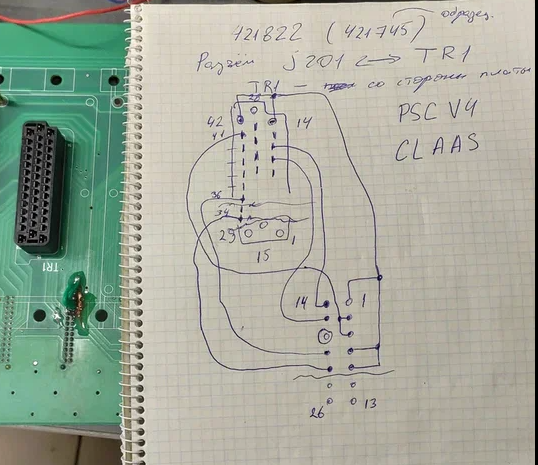 образец.
421822 (421745)
Разъём J201 <-> TR1
TR1 - со стороны платы
PSC V4
CLAAS
28
42
14
41
36
34
29
1
15
TR1
14
1
26
13